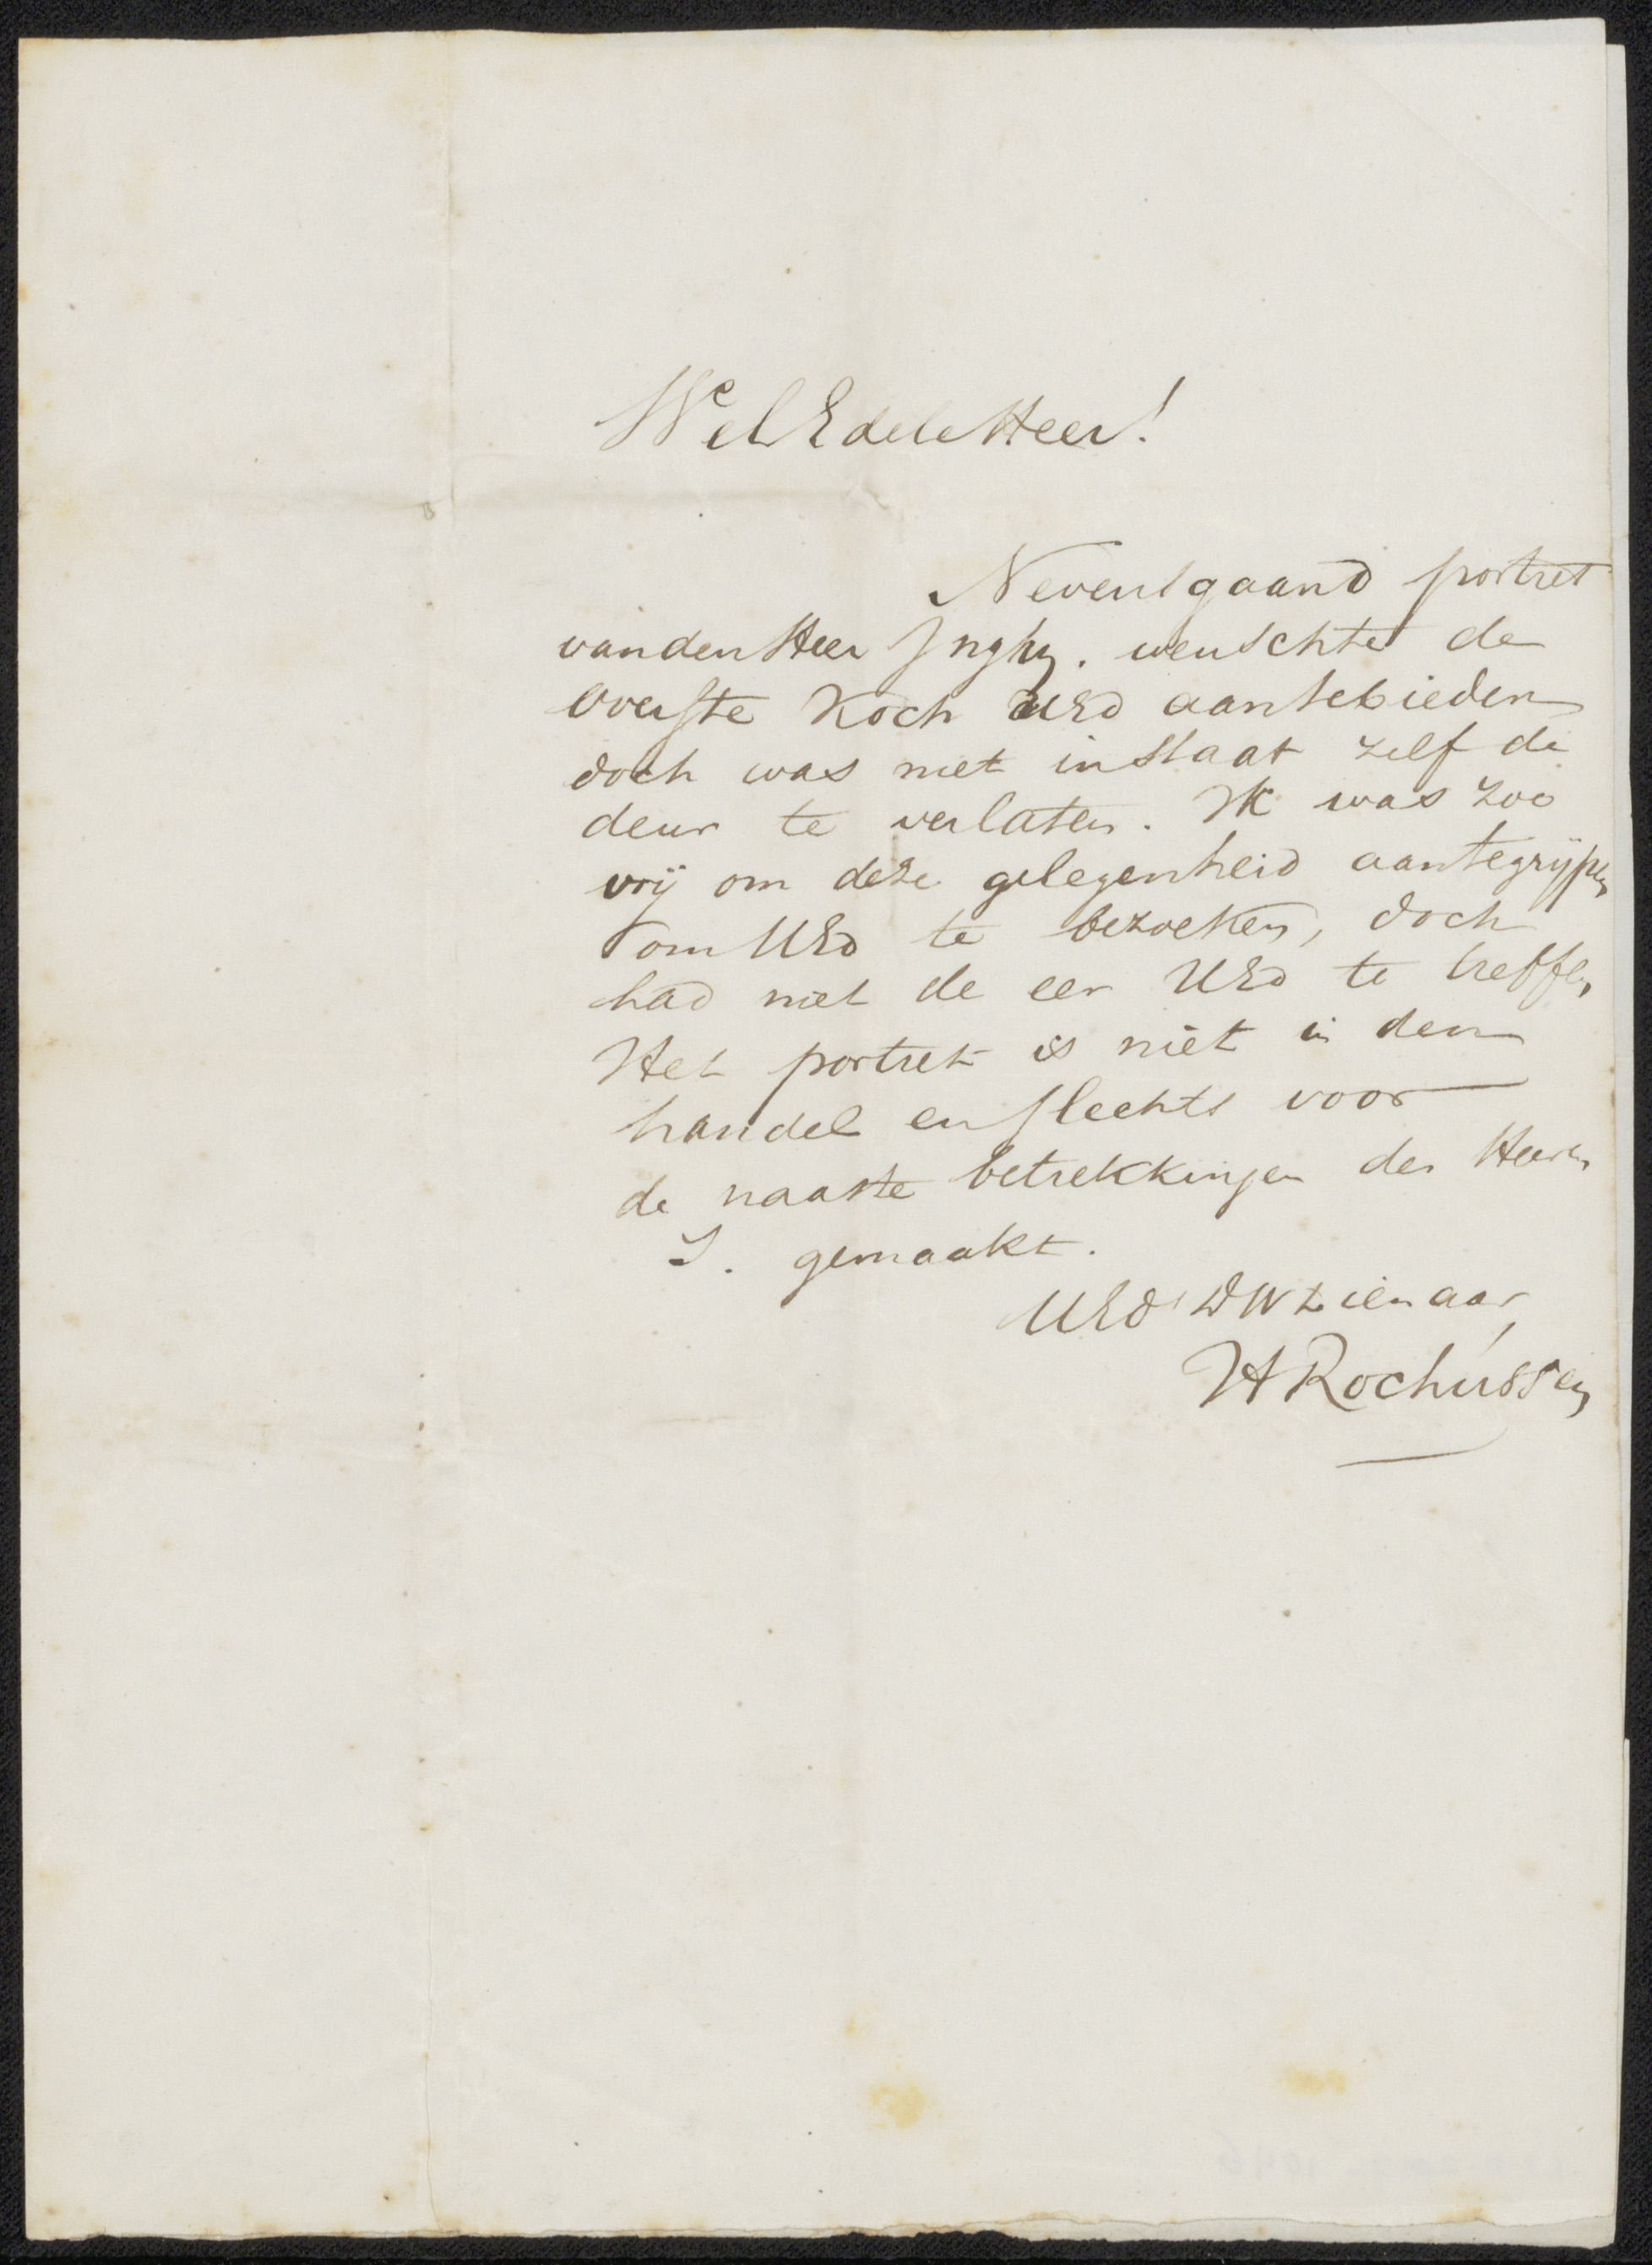 WelEdele Heer!
Nevensgaand portret
van den Heer wenschte de
Overste Koch UEd aantebieden
doch was niet in staat zelf de
deur te verlaten. Ik was zoo
vrij om deze gelegenheid aantegrijpen
om UEd te bezoeken, doch
had niet de eer UEd te treffen,
Het portret is niet in den
handel en slechts voor
de naaste betrekkingen des Heeren
I. gemaakt.
UEd DWDienaar,
HRochussen